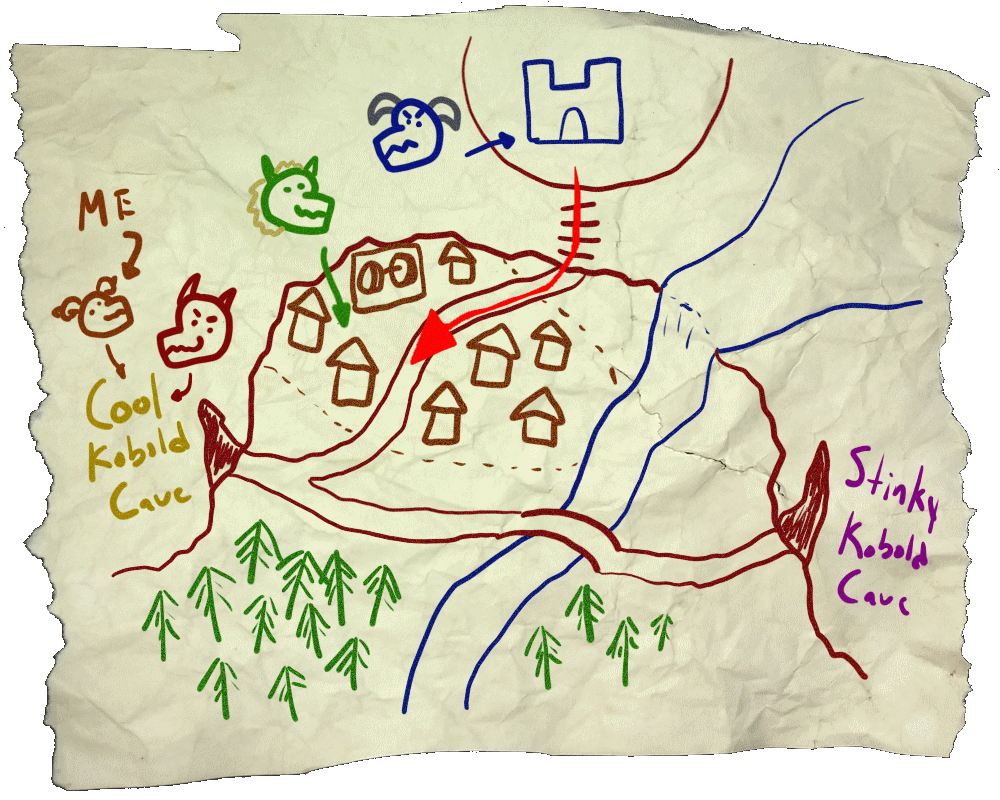 ME
Cool
Kobold
Cave
Stinky
Kobold
Cave